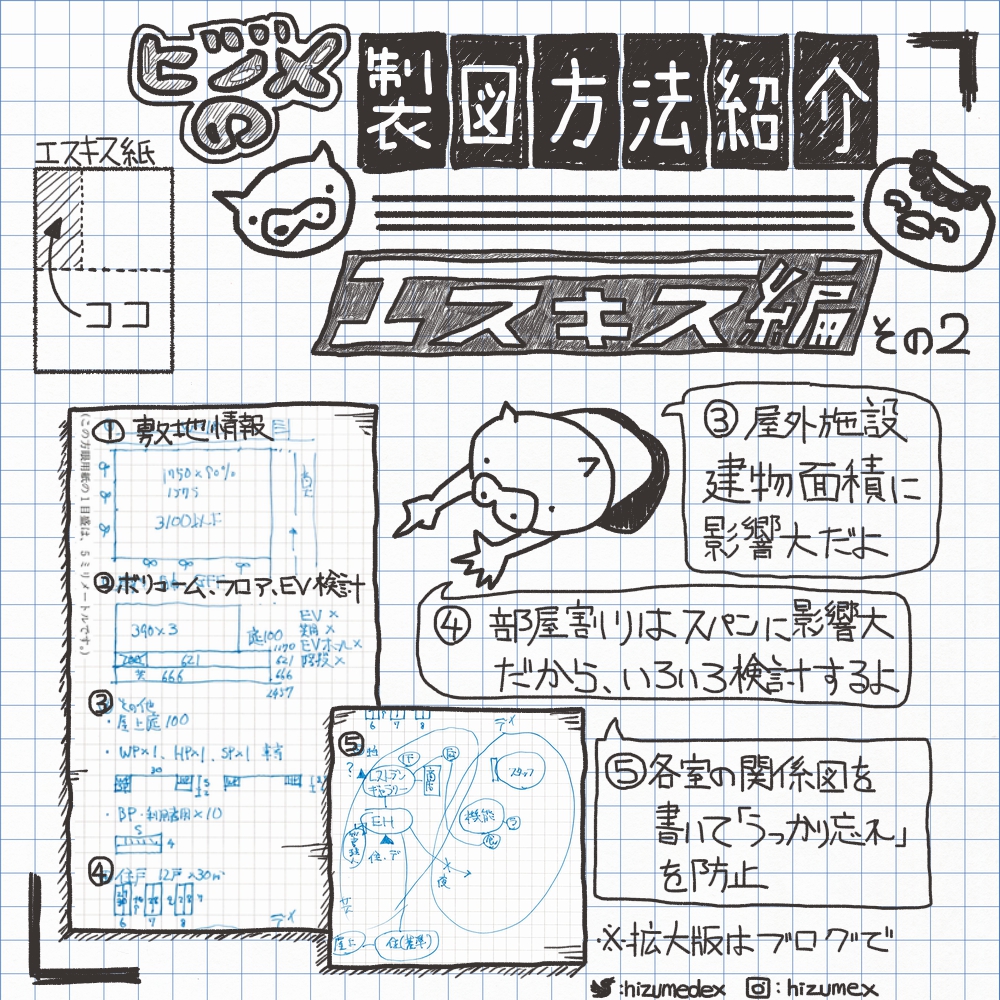 ヒヅメの
製図方法紹介
エスキス編 その2
エスキス紙
ココ
(この方眼用紙の1目盛は、5ミリメートルです。)
①敷地情報
1750×90%
1575
3100以下
②ボリューム、フロア、EV検討
390×3
庭100
621
666
1170
621
666
2457
EV×
EVホール×
階段×
③その他
・屋上庭100
・WP×1、HP×1、SP×1
・BP・利用者用×10
5
4
④住戸 12戸×30㎡
6 7 8
デイ
③屋外施設
建物面積に
影響大だよ
④部屋割りはスパンに影響大
だから、いろいろ検討するよ
⑤
6 7 8
デイ
レストラン
ギャラリー
スタッフ
EH
機能
住.デ
夜
屋上
住(基準)
⑤各室の関係図を
書いて「うっかり忘れ」
を防止
※拡大版はブログで
:hizumedex :hizumex